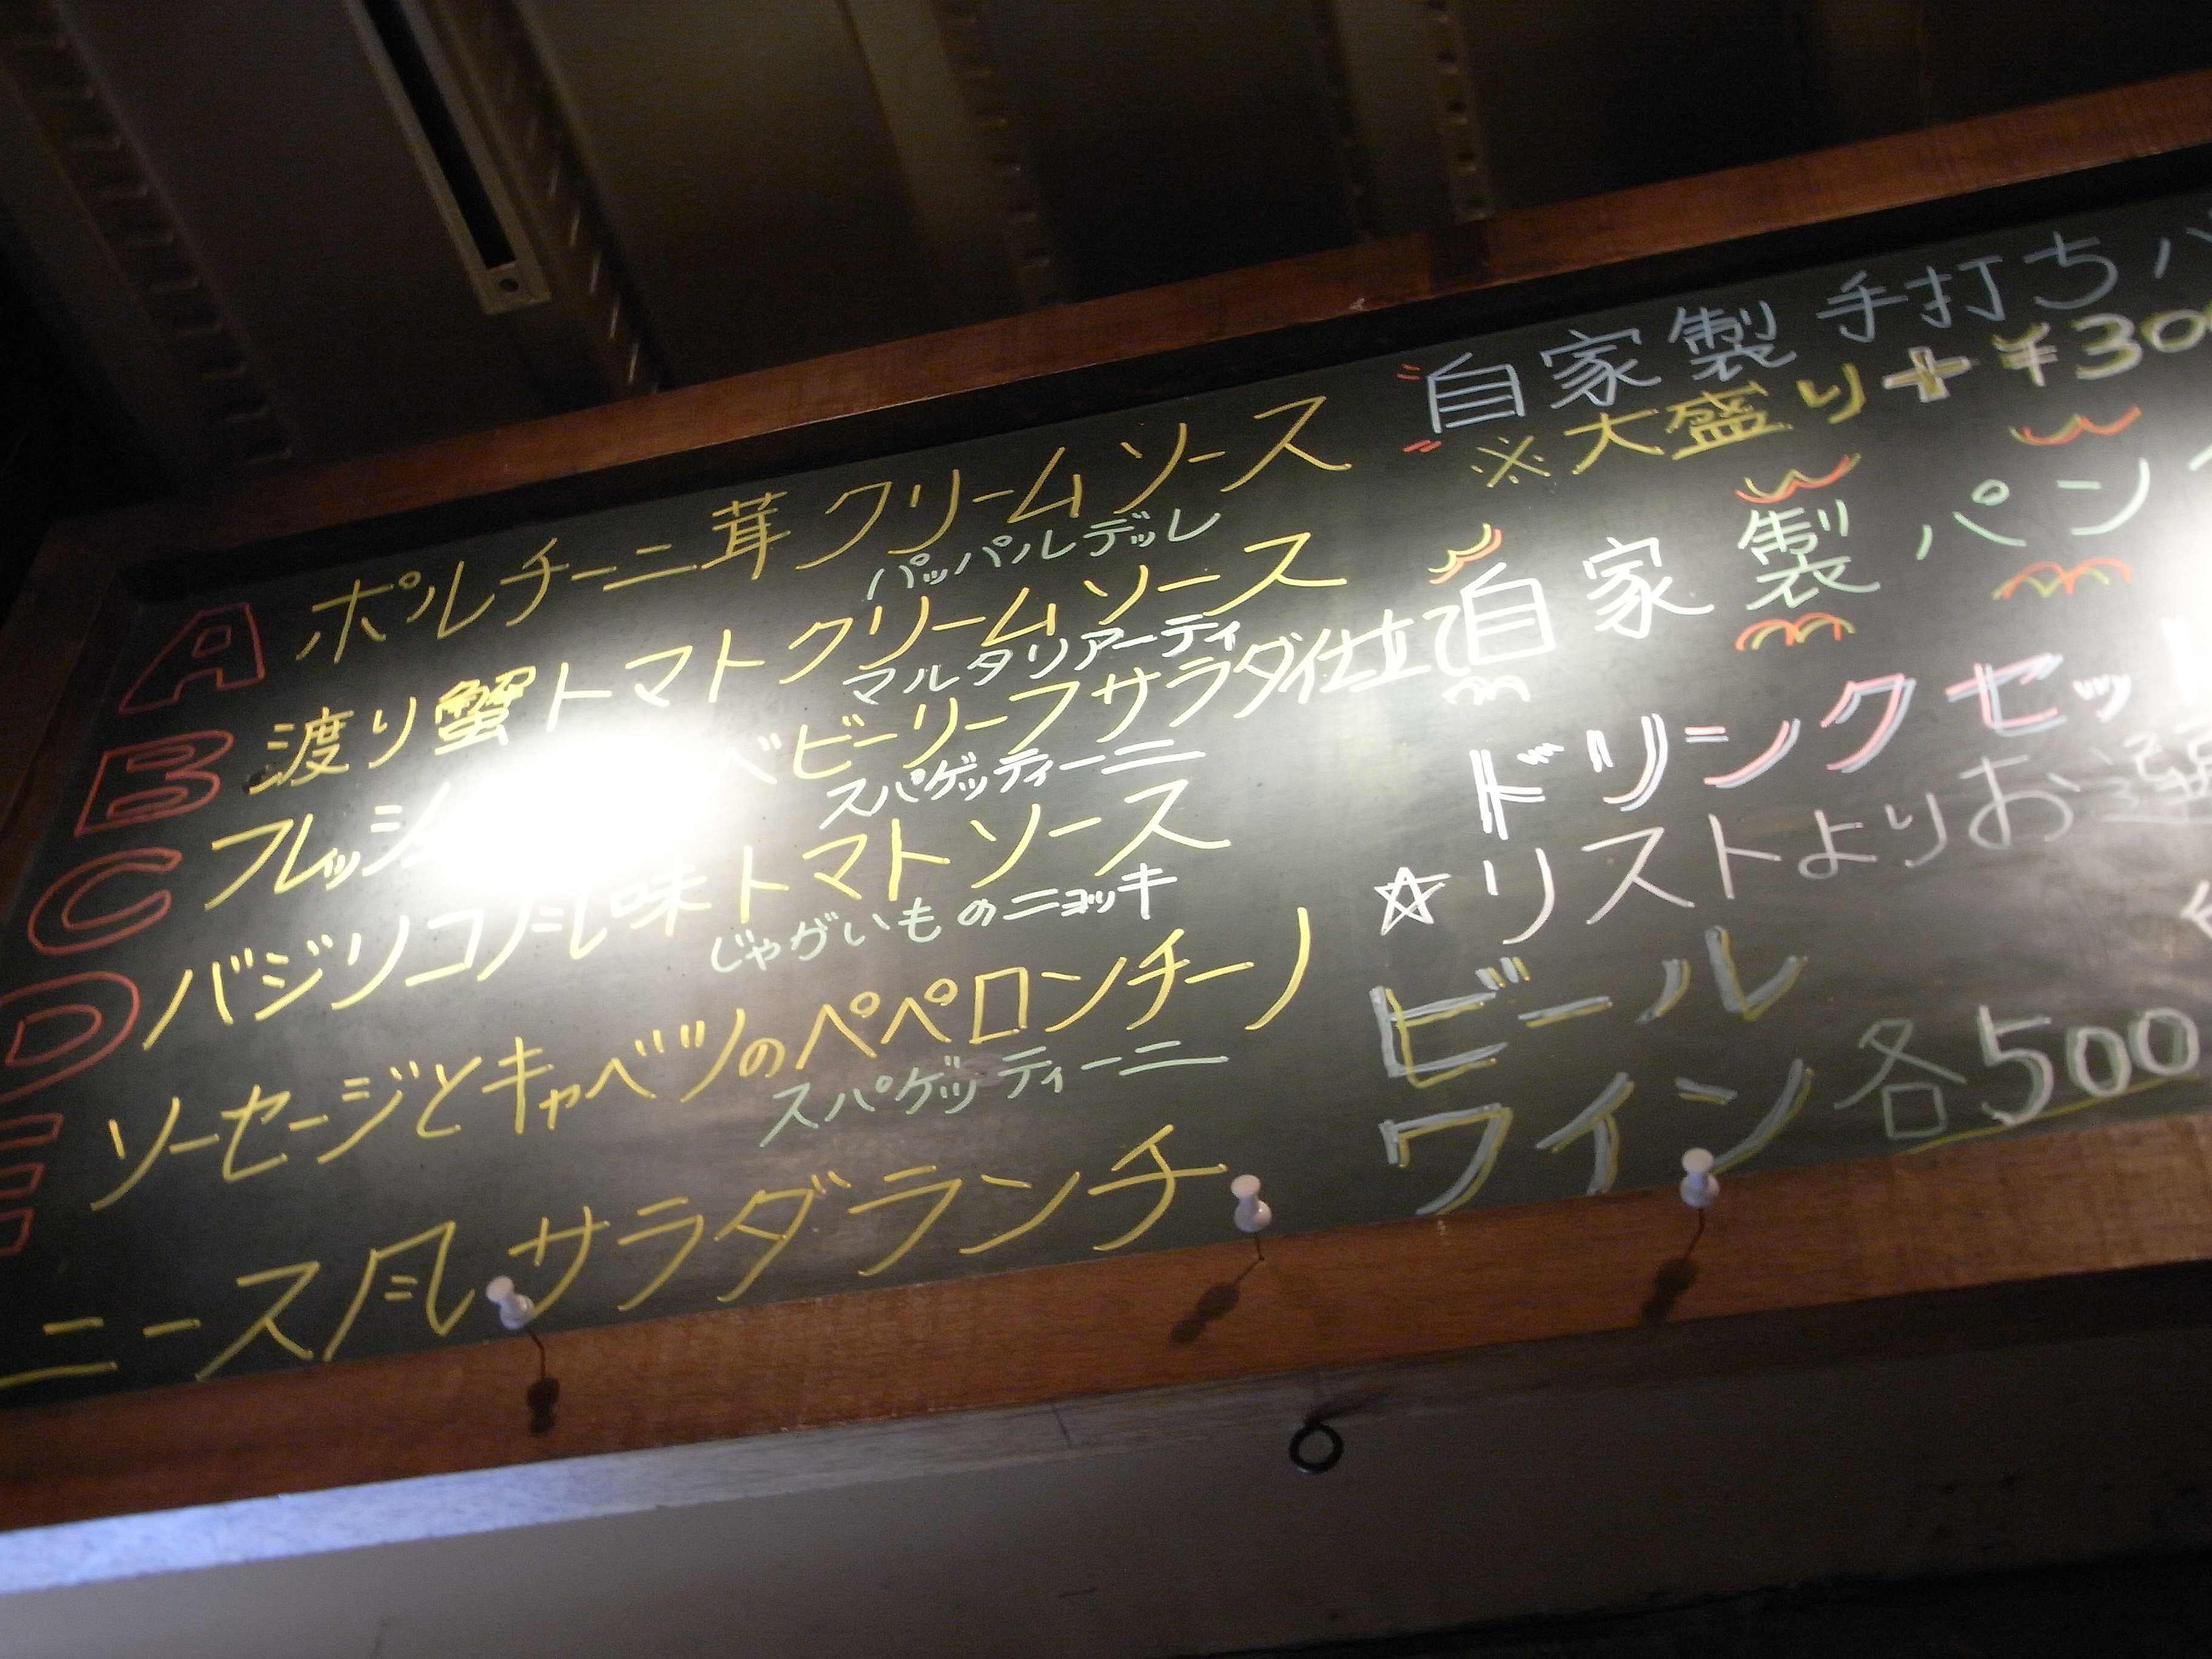 A ポルチーニ茸クリームソース
パッパルデッレ
B 渡り蟹トマトクリームソース
マルタリアーティ
C フレッシ ベビーリーフサラダ仕立て
スパゲッティーニ
D バジリコ風味トマトソース
じゃがいものニョッキ
E ソーセージとキャベツのペペロンチーノ
スパゲッティーニ
ニース風サラダランチ
自家製手打ち
※大盛り+¥30
自家製パン
ドリンクセット
☆リストよりお選
ビール
ワイン各500